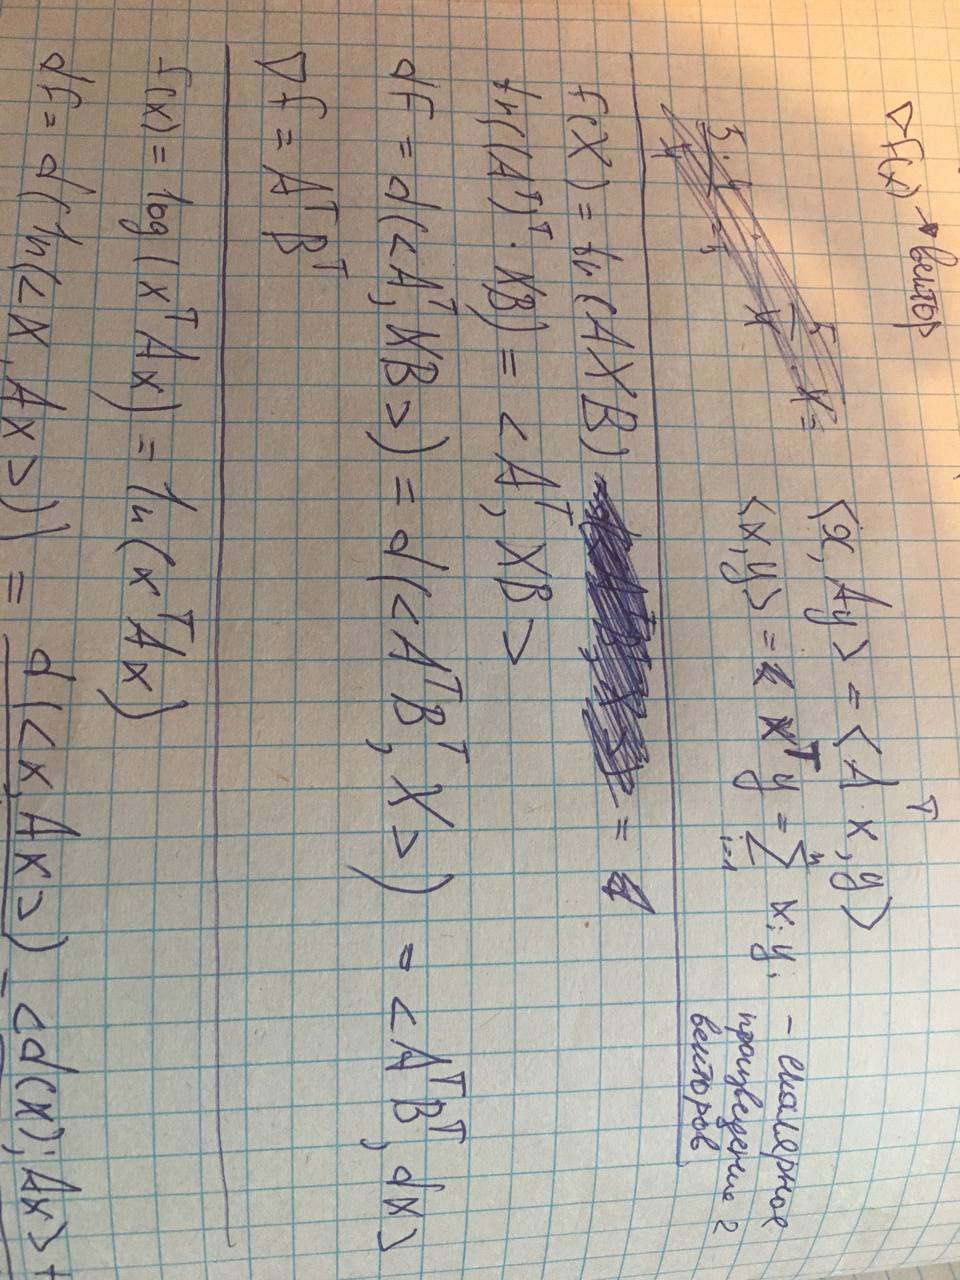 ∇f(x) → вектор
⟨x, Ay⟩ = ⟨Aᵀx, y⟩
⟨x, y⟩ = xᵀy = ∑ᵢ₌₁ⁿ xᵢyᵢ - скалярное произведение 2 векторов
f(X) = tr(AXB) =
tr((Aᵀ)ᵀ · XB) = <Aᵀ, XB>
df = d(<Aᵀ, XB>) = d(<AᵀBᵀ, X>) = <AᵀBᵀ, dX>
∇f = AᵀBᵀ
f(x) = log(xᵀAx) = ln(xᵀAx)
df = d(ln(<x, Ax>)) = d(<x, Ax>) = <d(x); Ax> +